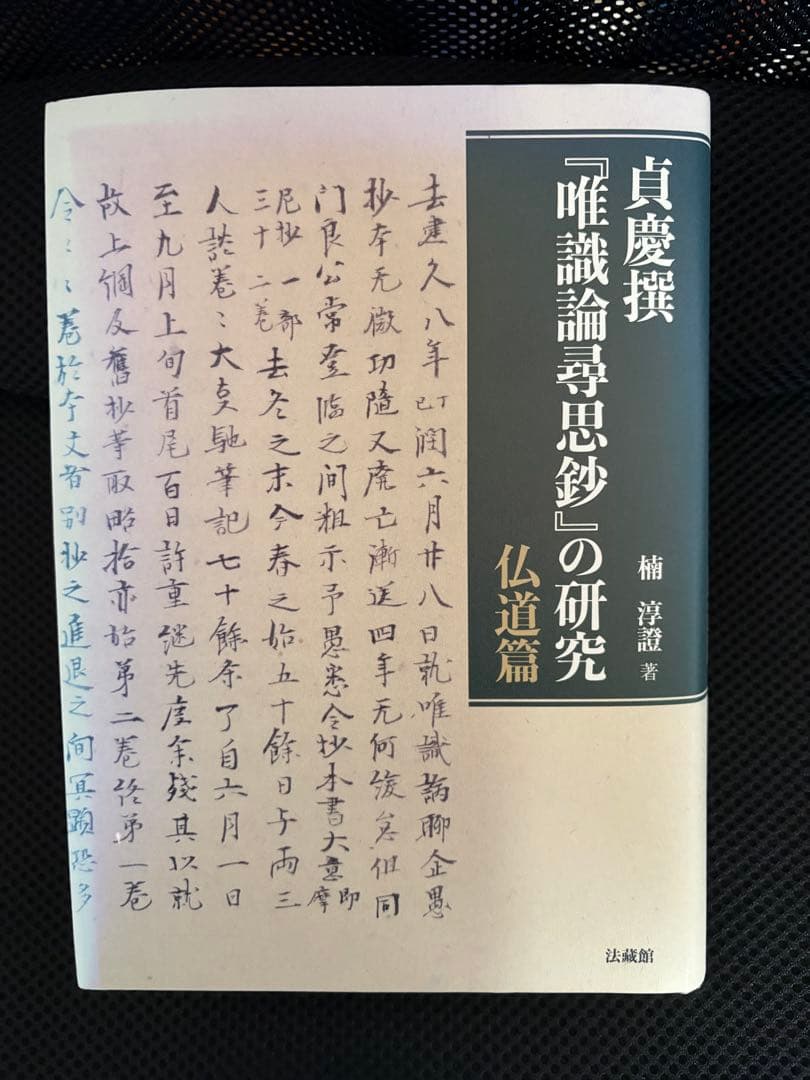 貞慶撰
『唯識論尋思鈔』の研究
仏道篇
楠 淳證 著
去建久八年丁巳潤六月廿八日就唯識論聊企愚
抄本无微功随又廃亡漸送四年无何後怠但同
門良公常登臨之间粗示予愚悉令抄本書大意即摩
尼抄一部三十二巻去冬之末今春之始五十餘日与両三
人談巻〻大文馳筆記七十餘条了自六月一日
至九月上旬首尾百日許重継先度余残其以就
故上綱及舊抄等取略捨亦始第二巻終第一巻
令〻巻於本文者別抄之進退之间冥顕恐多
法藏館